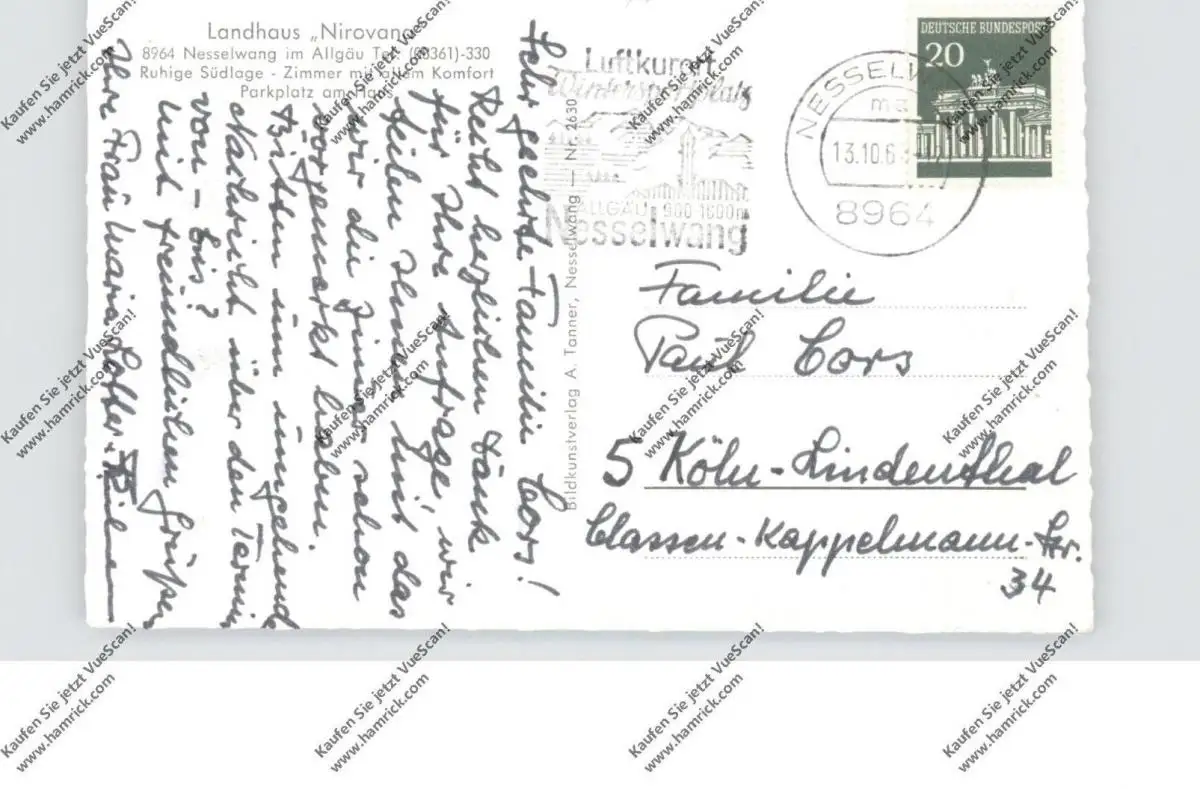 Landhaus „Nirovana
8964 Nesselwang im Allgäu Tel. (08361)-330
Ruhige Südlage - Zimmer mit allem Komfort
Parkplatz am Haus
Sehr geehrte Familie Cors!
Recht herzlichen Dank
für Ihre Anfrage, wir
teilen Ihnen mit das
wir die Zimmer schon
vorgemerkt haben.
Bitten um umgehende
Nachricht über den Termin
von - bis?
Mit freundlichen Grüßen
Ihre Frau Maria
Bildkunstverlag A. Tanner, Nesselwang — Nr. 2630
Luftkurort
Wintersportplatz
ALLGÄU 900-1600m
Nesselwang
NESSELW
ma
13.10.6
8964
DEUTSCHE BUNDESPOST
20
Familie
Paul Cors
5 Köln-Lindenthal
Classen-Kappelmann-Str.
34
Kaufen Sie jetzt VueScan!
www.hamrick.com